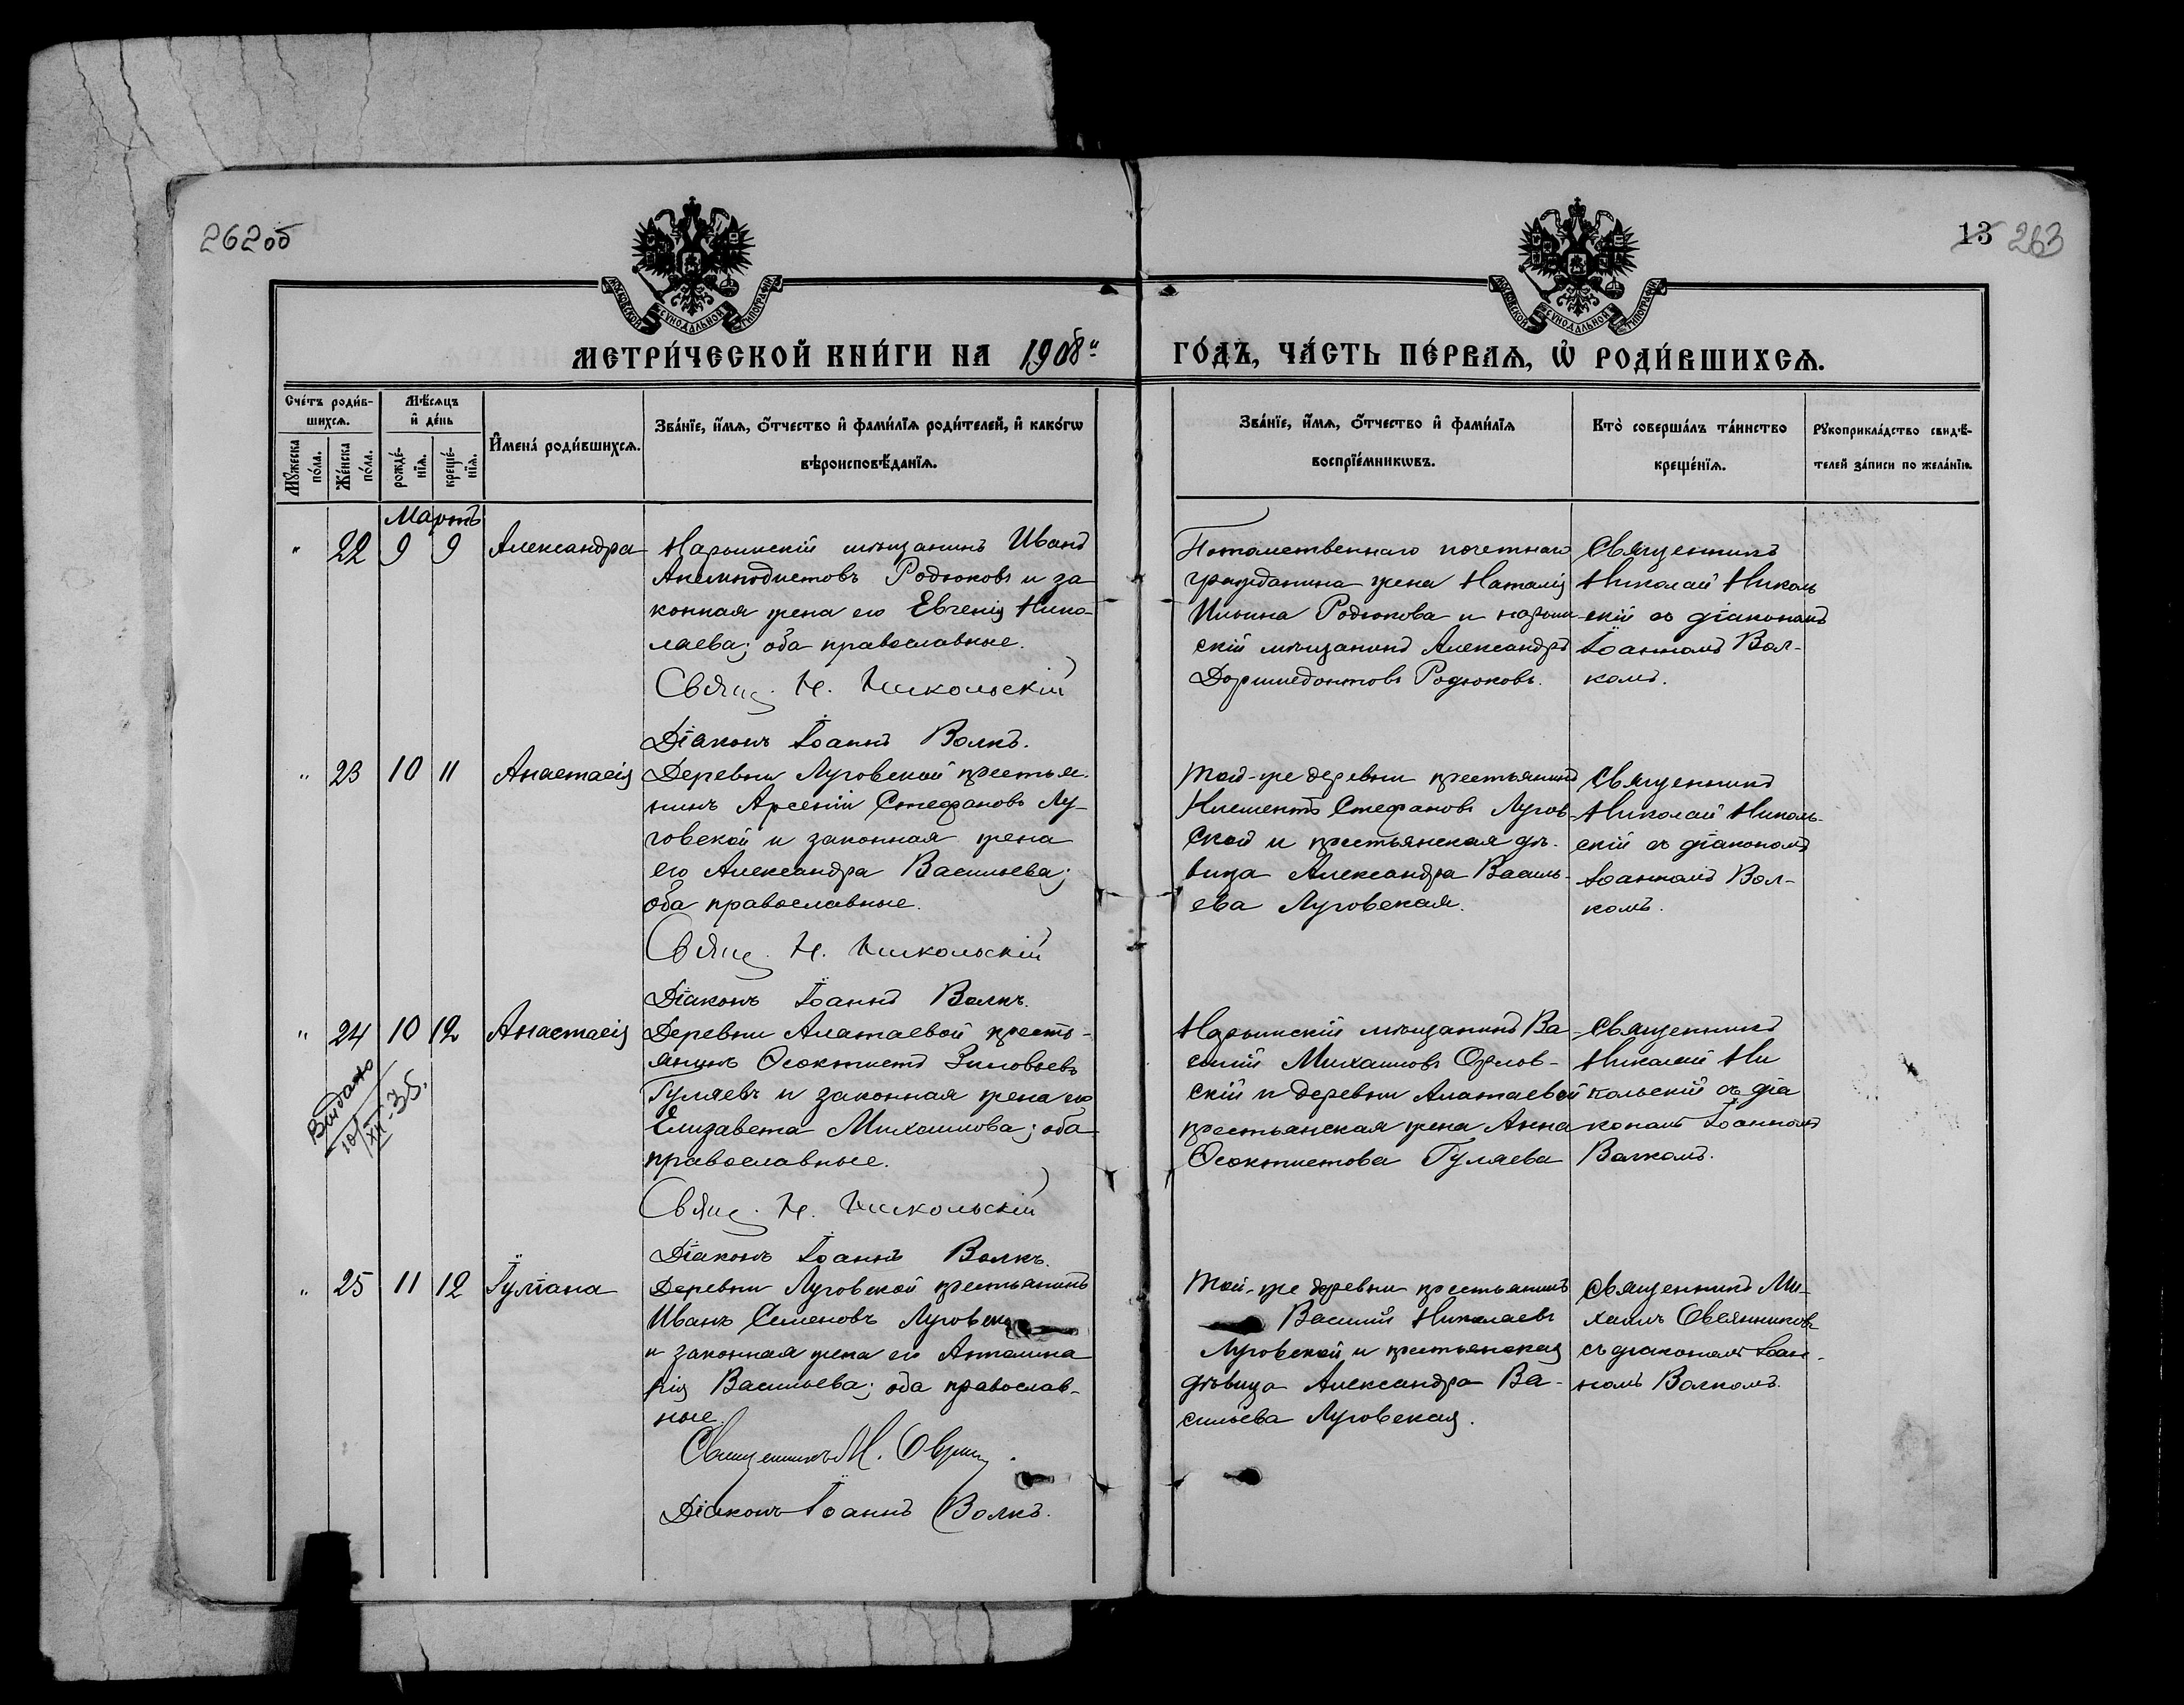 262об
13 263
МОСКОВСКОЙ СУНОДАЛЬНОЙ ТИПОГРАФІИ
МОСКОВСКОЙ СУНОДАЛЬНОЙ ТИПОГРАФІИ
МЕТРИ́ЧЕСКОЙ КНИ́ГИ НА 1908й
ГО́ДЪ, ЧА́СТЬ ПЕ́РВАѦ, Ѡ҆ РОДИ́ВШИХСѦ.
Сче́тъ роди́в-
шихсѧ.
Мꙋжеска по́ла.
Же́нска по́ла.
Мѣ́сѧцъ
и҆ де́нь
рожде́-нїѧ.
креще́-нїѧ.
И҆мена̀ роди́вшихсѧ.
Зва́нїе, и҆́мѧ, ѻ҆́тчество и҆ фами́лїѧ роди́телей, и҆ како́гѡ
вѣроисповѣ́данїѧ.
Зва́нїе, и҆́мѧ, ѻ҆́тчество и҆ фами́лїѧ
воспрїе́мникѡвъ.
Кто̀ соверша́лъ та́инство
креще́нїѧ.
Рꙋкоприкла́дство свидѣ́-
телей за́писи по жела́нїю.
Мартъ
" 22 9 9 Александра
Нарымскій мѣщанинъ Иванъ
Анемподистовъ Родюковъ и за
конная жена его Евгенія Нико-
лаева; оба православные.
Свящ. Н. Никольскій
Діаконъ Іоаннъ Волкъ.
Потомственнаго почетнаго
гражданина жена Наталія
Ильина Родюкова и нарым-
скій мѣщанинъ Александръ
Доримедонтовъ Родюковъ.
Священникъ
Николай Николь
скій съ діакономъ
Іоанномъ Вол-
комъ.
" 23 10 11 Анастасія
Деревни Луговской крестья-
нинъ Арсеній Стефановъ Лу-
говской и законная жена
его Александра Васильева;
оба православные.
Свящ. Н. Никольскій
Діаконъ Іоаннъ Волкъ.
Той-же деревни крестьянинъ
Климентъ Стефановъ Лугов-
ской и крестьянская дѣ-
вица Александра Василь-
ева Луговская.
Священникъ
Николай Николь-
скій съ діакономъ
Іоанномъ Вол-
комъ.
" 24 10 12 Анастасія
Выдано
10/XII-35.
Деревни Алатаевой кресть-
янинъ Ѳеоктистъ Зиновьевъ
Гуляевъ и законная жена его
Елизавета Михаилова; оба
православные.
Свящ. Н. Никольскій
Діаконъ Іоаннъ Волкъ.
Нарымскій мѣщанинъ Ва-
силій Михаиловъ Орлов-
скій и деревни Алатаевой
крестьянская жена Анна
Ѳеоктистова Гуляева
Священникъ
Николай Ни
кольскій съ діа
кономъ Іоанномъ
Волкомъ.
" 25 11 12 Іуліана
Деревни Луговской крестьянинъ
Иванъ Семеновъ Луговско
и законная жена его Апполина
рія Васильева; оба православ-
ные.
Священникъ М.
Діаконъ Іоаннъ Волкъ.
Той-же деревни крестьянинъ
Василій Николаевъ
Луговской и крестьянская
дѣвица Александра Ва-
сильева Луговская.
Священникъ Ми-
хаилъ Овсянниковъ
съ діакономъ Іоан-
номъ Волкомъ.